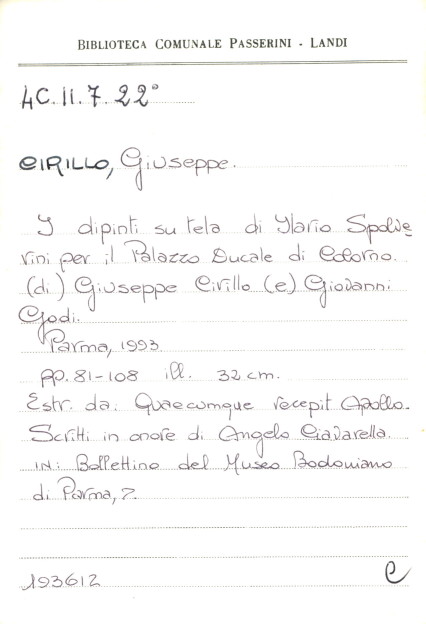 BIBLIOTECA COMUNALE PASSERINI - LANDI
4C.II.7.22°
CIRILLO, Giuseppe.
I dipinti su tela di Ilario Spolve
rini per il Palazzo Ducale di Colorno.
(di) Giuseppe Cirillo (e) Giovanni
Godi.
Parma, 1993
pp. 81-108 ill. 32 cm.
Estr. da: Quaecumque recepit Apollo.
Scritti in onore di Angelo Ciavarella.
IN: Bollettino del Museo Bodoniano
di Parma, 7.
193612 C